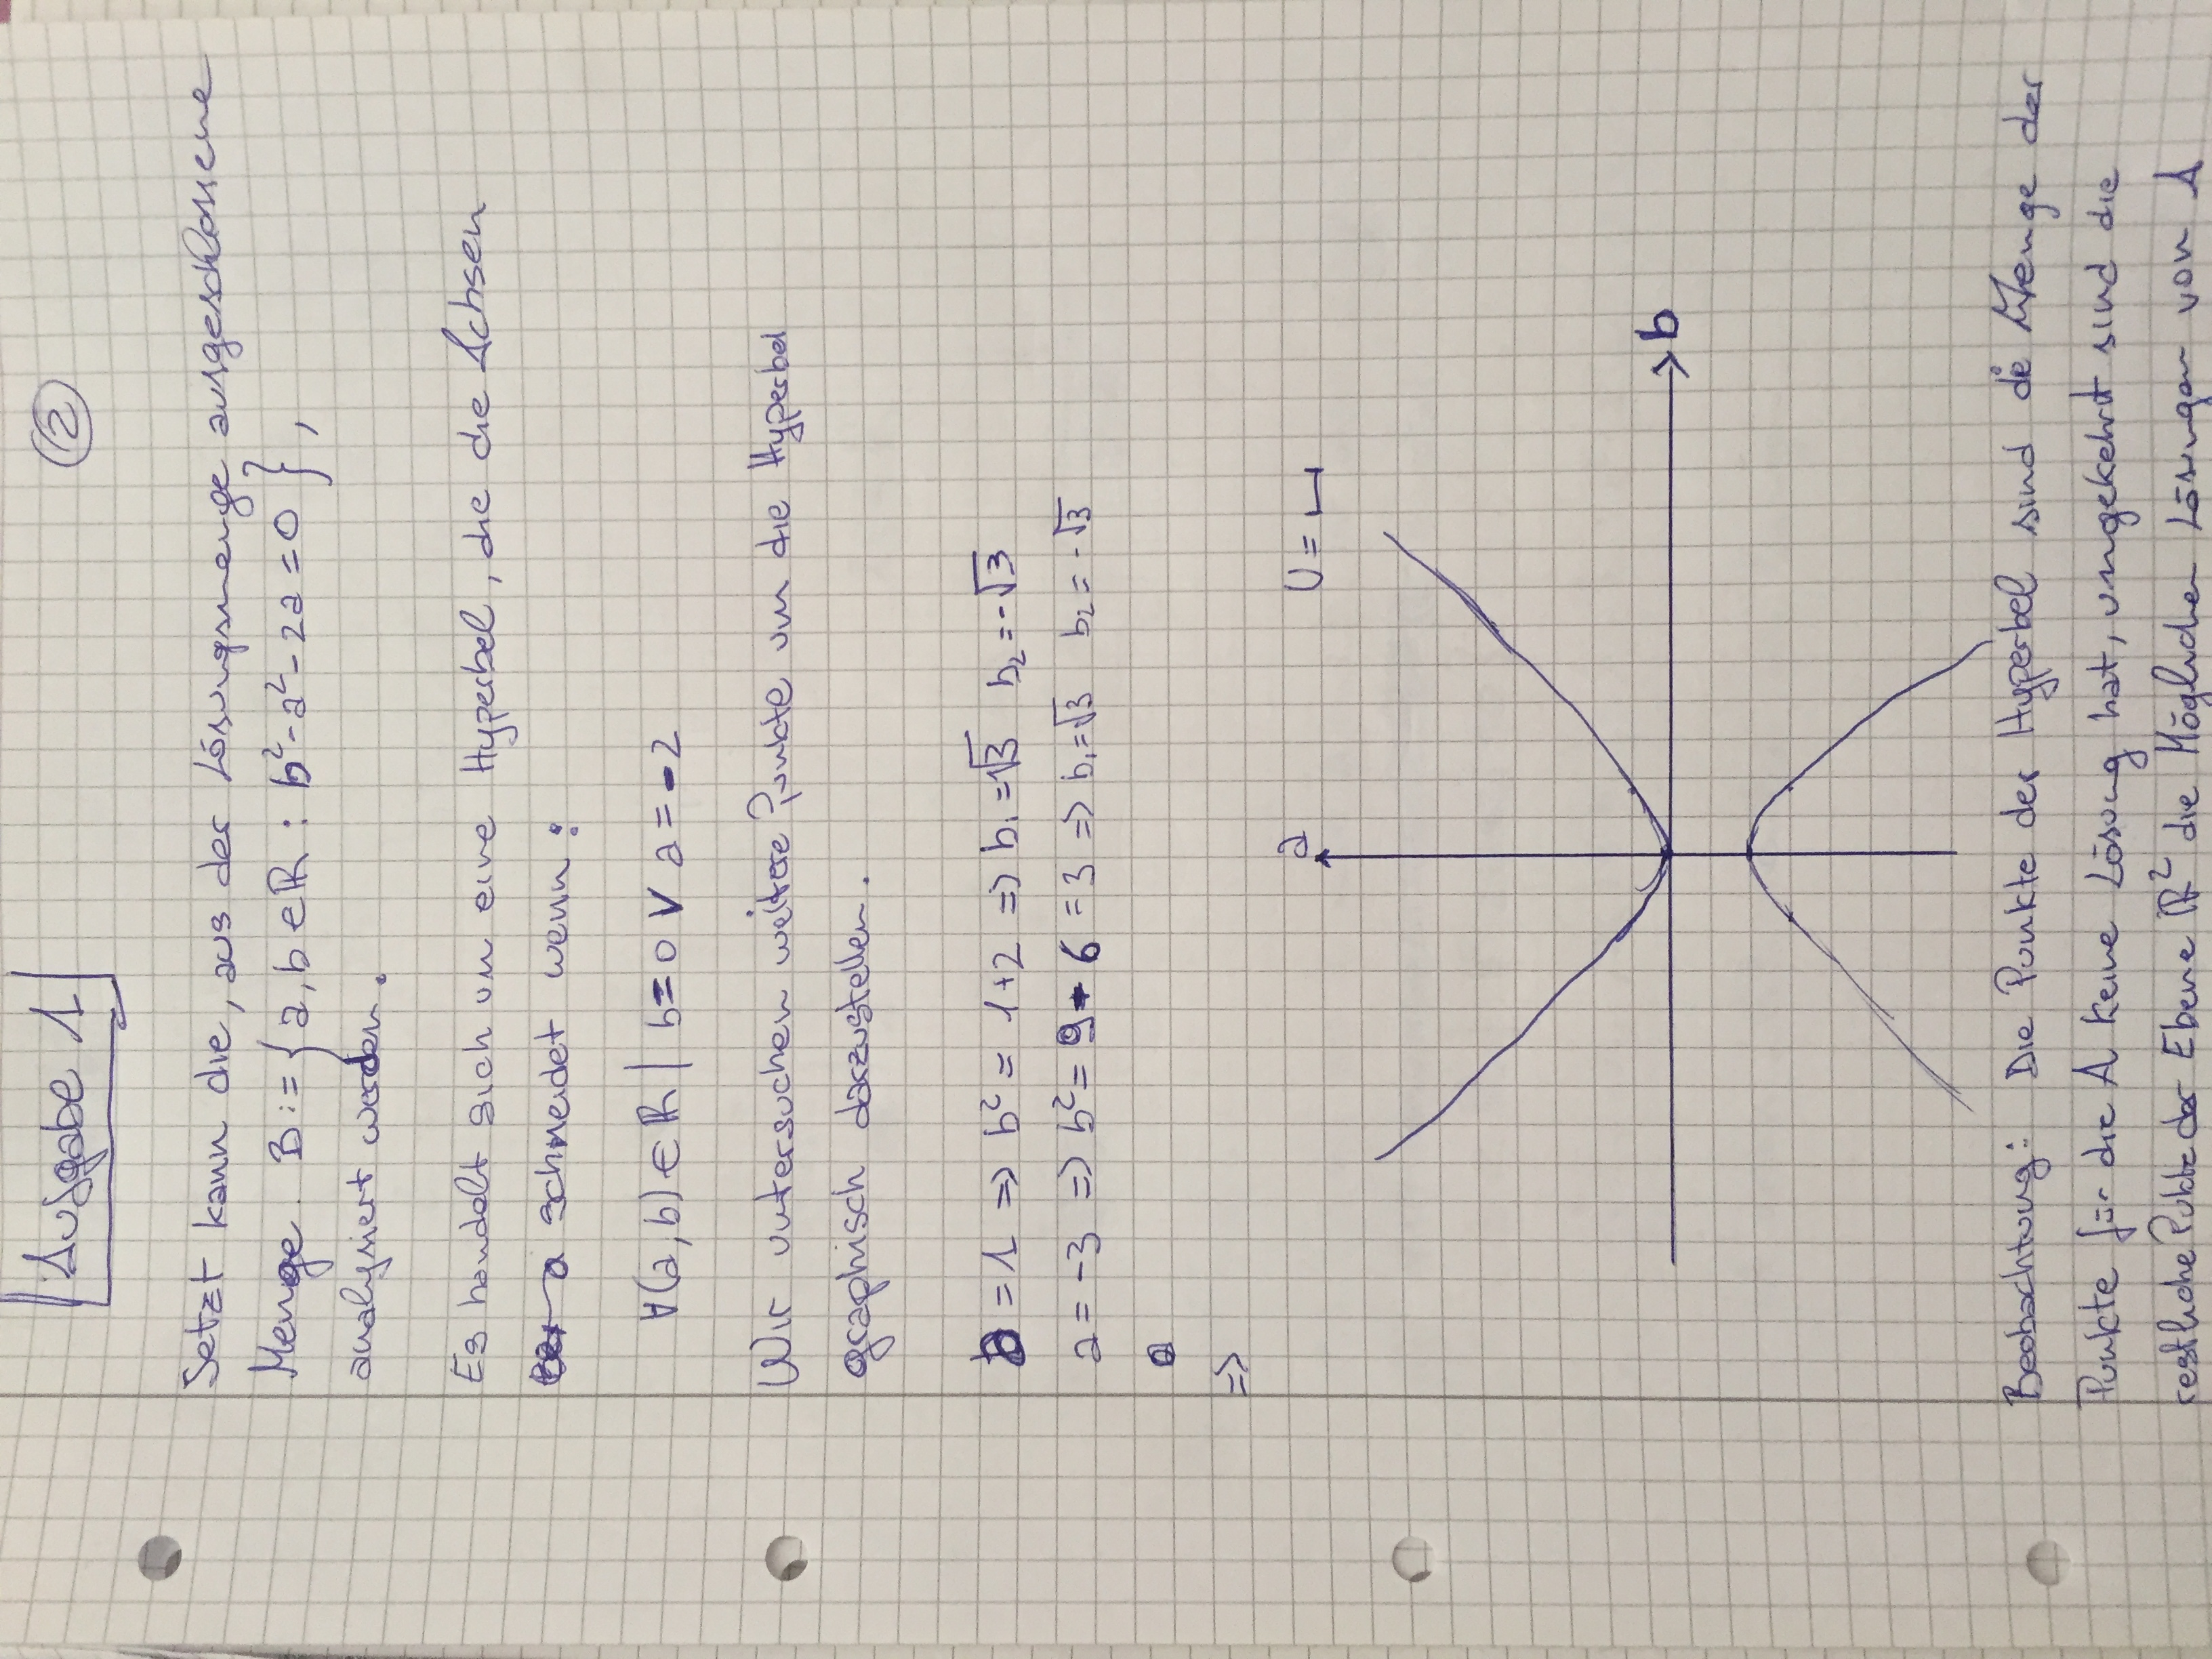 Aufgabe 1
2
Jetzt kann die, aus der Lösungsmenge ausgeschlossene
Menge B := { a, b ∈ ℝ : b² - a² - 2a = 0 },
analysiert werden.
Es handelt sich um eine Hyperbel, die die Achsen
schneidet wenn:
∀(a, b) ∈ ℝ | b = 0 ∨ a = -2
Wir untersuchen weitere Punkte um die Hyperbel
graphisch darzustellen.
a = 1 => b² = 1+2 => b₁ = √3 b₂ = -√3
a = -3 => b² = 9 - 6 = 3 => b₁ = √3 b₂ = -√3
a
=>
a
U =
b
Beobachtung: Die Punkte der Hyperbel sind die Menge der
Punkte für die A keine Lösung hat, umgekehrt sind die
restliche Pukte der Ebene ℝ² die Möglichen Lösungen von A